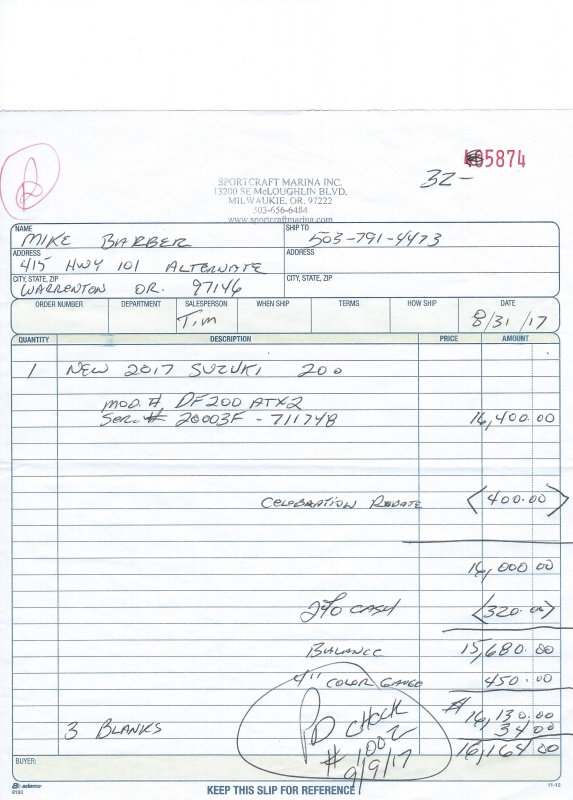 5874
32-
SPORTCRAFT MARINA INC.
13200 SE McLOUGHLIN BLVD.
MILWAUKIE, OR. 97222
503-656-6484
www.sportcraftmarina.com
NAME MIKE BARBER SHIP TO 503-791-4473
ADDRESS 415 HWY 101 ALTERNATE ADDRESS
CITY, STATE, ZIP WARRENTON OR. 97146 CITY, STATE, ZIP
ORDER NUMBER DEPARTMENT SALESPERSON WHEN SHIP TERMS HOW SHIP DATE
Tim 8/31/17
QUANTITY DESCRIPTION PRICE AMOUNT
1 NEW 2017 SUZUKI 200
MOD. # DF200 ATX2
SER. # 20003F - 711748 16,400.00
CELEBRATION REBATE <400.00>
16,000 00
2% CASH <320.00>
BALANCE 15,680.00
4" COLOR GAUGE 450.00
$ 16,130.00
3 BLANKS 34 00
16,164 00
PD CHECK
# 1002
9/9/17
BUYER:
adams
8100
KEEP THIS SLIP FOR REFERENCE
11-13